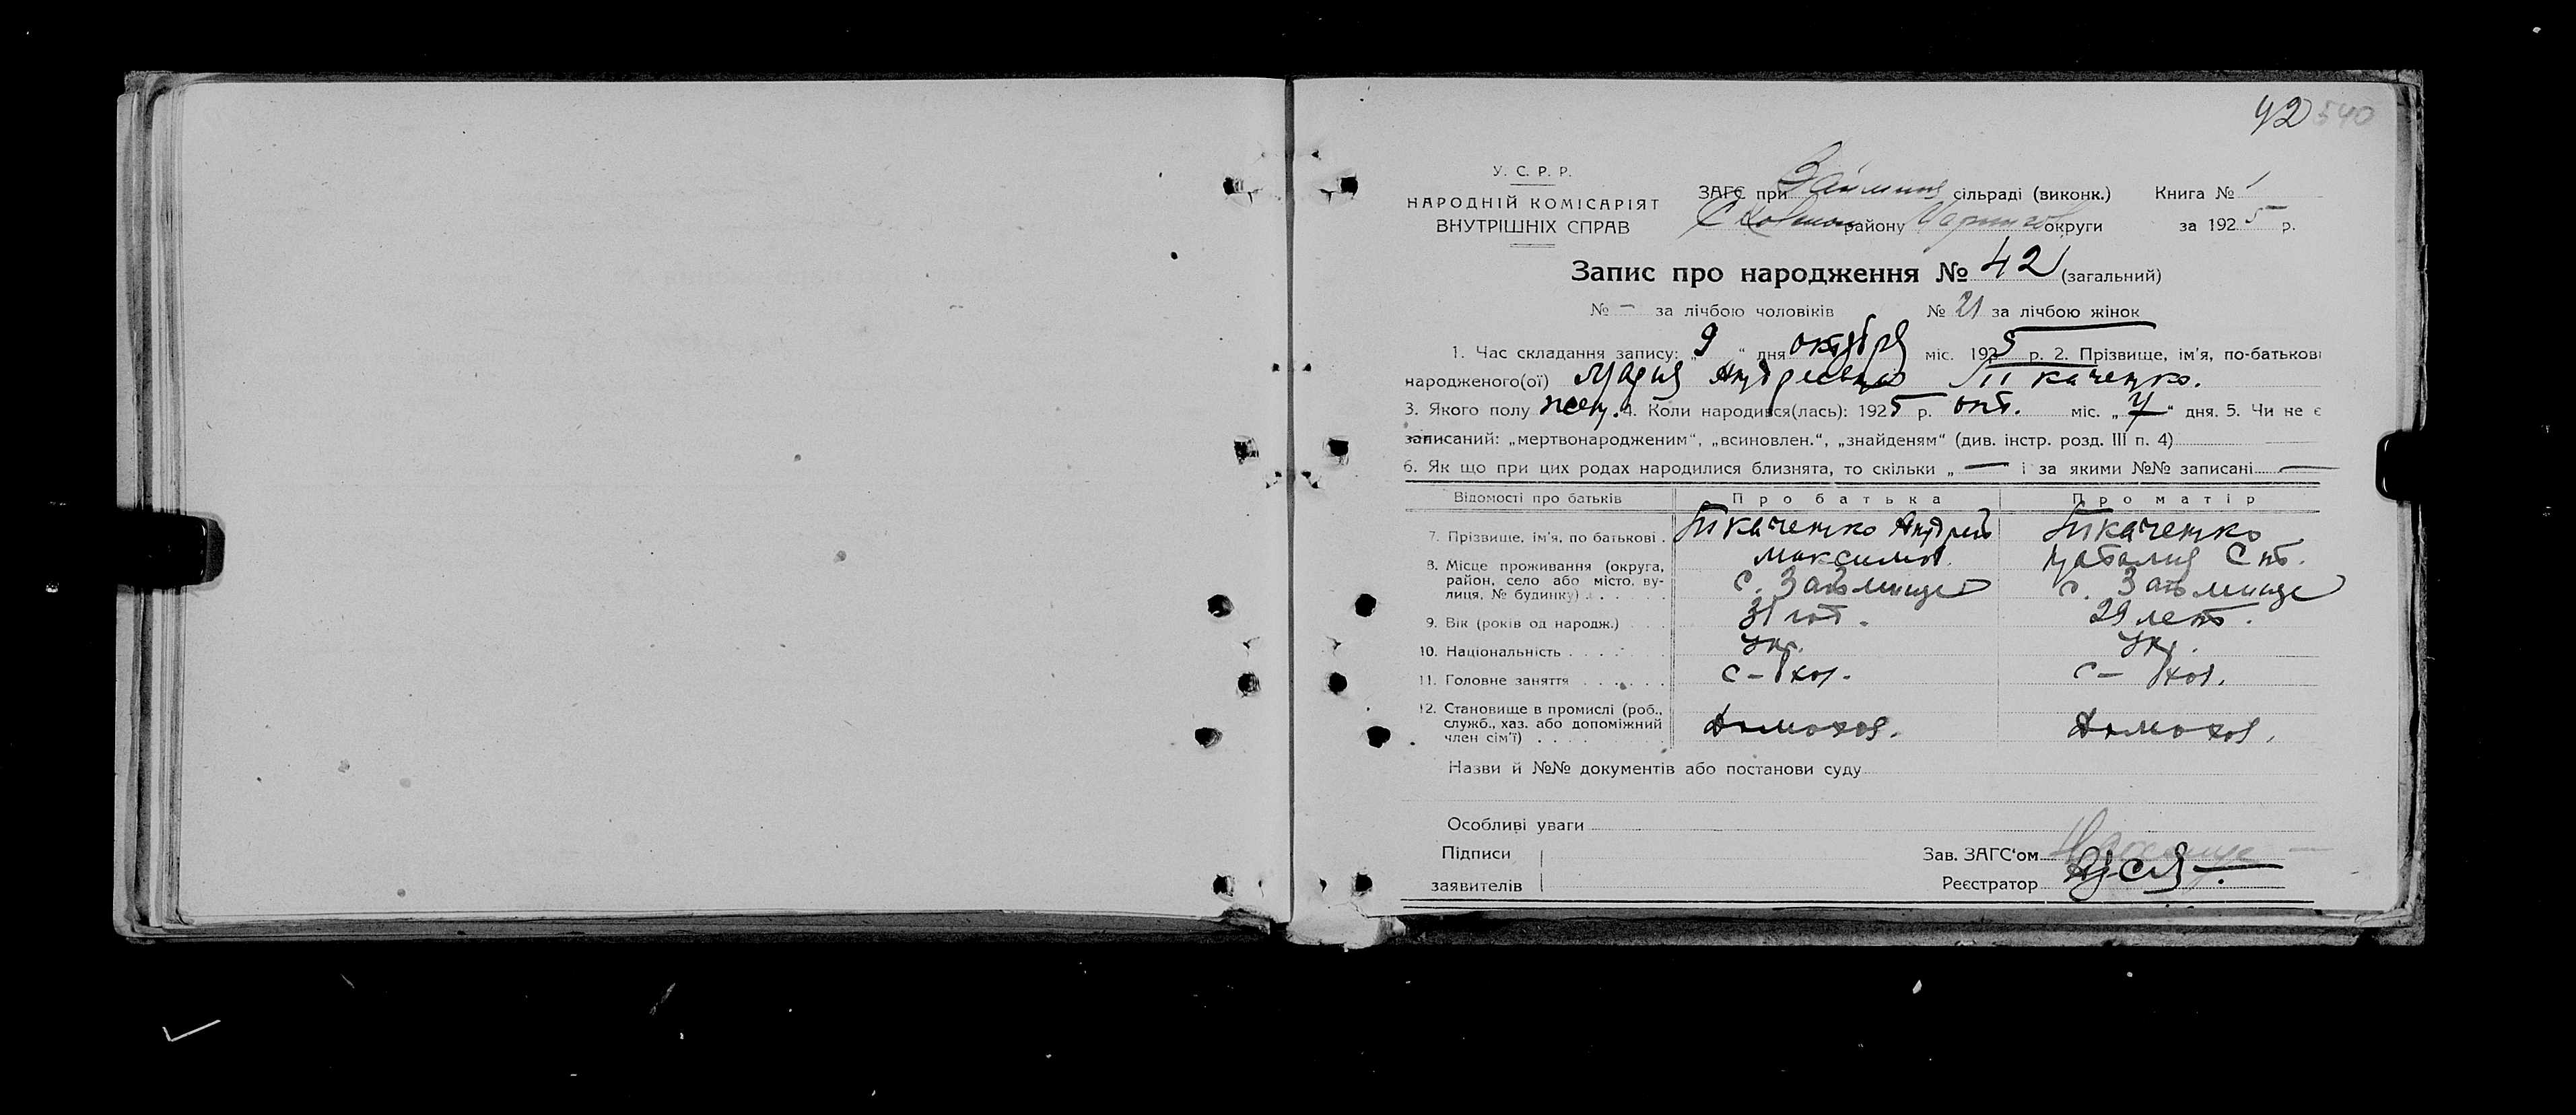 42 540
У. С. Р. Р.
НАРОДНІЙ КОМІСАРІЯТ
ВНУТРІШНІХ СПРАВ
ЗАГС при сільраді (виконк.) Книга № 1
району округи за 1925 р.
Запис про народження № 42 (загальний)
№ — за лічбою чоловіків № 21 за лічбою жінок
1. Час складання запису: „9“ дня октября міс. 1925 р. 2. Прізвище, ім'я, по-батькові
народженого(ої) Мария Андреевна Ткаченко.
3. Якого полу жен. 4. Коли народився(лась): 1925 р. окт. міс. „7“ дня. 5. Чи не є
записаний: „мертвонародженим“, „всиновлен.“, „знайденям“ (див. інстр. розд. III п. 4)
6. Як що при цих родах народилися близнята, то скільки „ — і за якими №№ записані —
Відомості про батьків Про батька Про матір
7. Прізвище, ім'я, по батькові . Ткаченко Андрей Ткаченко
Максимов. Наталия
8. Місце проживання (округа,
район, село або місто, ву-
лиця, № будинку) . . . . . с. с.
9. Вік (років од народж.) . . . 31 29 лет.
10. Національність . . . . . . Укр. Укр.
11. Головне заняття . . . . . . С-хоз. С-хоз.
12. Становище в промислі (роб.,
служб., хаз. або допоміжний
член сім'ї) . . . . . . . Домохоз. Домохоз.
Назви й №№ документів або постанови суду
Особливі уваги
Підписи Зав. ЗАГС'ом
заявителів Реєстратор